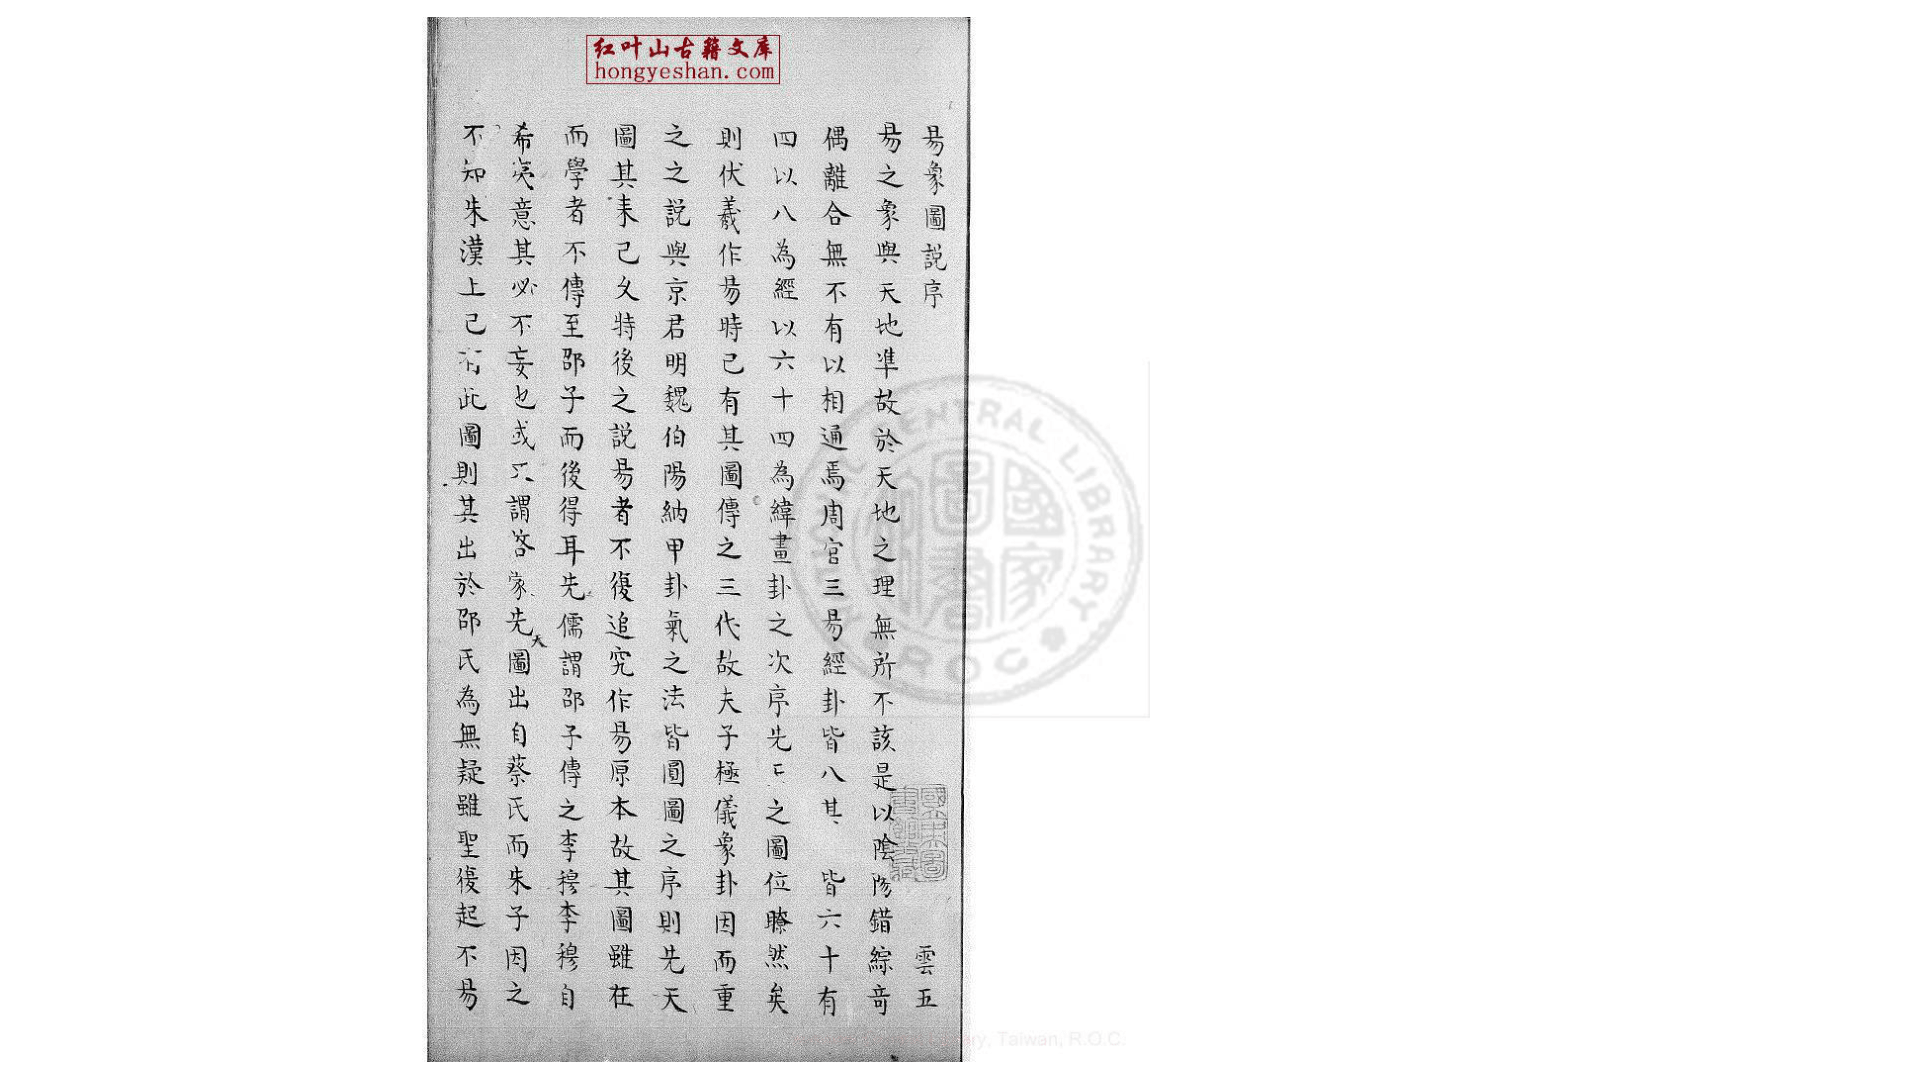 红叶山古籍文库
hongyeshan.com
易象圖説序 雲五
易之象與天地準故於天地之理無所不該是以陰陽錯綜竒
偶離合無不有以相通焉周官三易經卦皆八其 皆六十有
四以八為經以六十四為緯畫卦之次序先 之圖位瞭然矣
則伏羲作易時已有其圖傳之三代故夫子極儀象卦因而重
之之説與京君明魏伯陽納甲卦氣之法皆圓圖之序則先天
圖其来已久特後之説易者不復追究作易原本故其圖雖在
而學者不傳至邵子而後得耳先儒謂邵子傳之李穆李穆自
希夷意其必不妄也或 謂啓家先天圖出自蔡氏而朱子因之
不知朱漢上已有此圖則其出於邵氏為無疑雖聖復起不易
CENTRAL LIBRARY
R.O.C
國家圖書
Library, Taiwan, R.O.C.